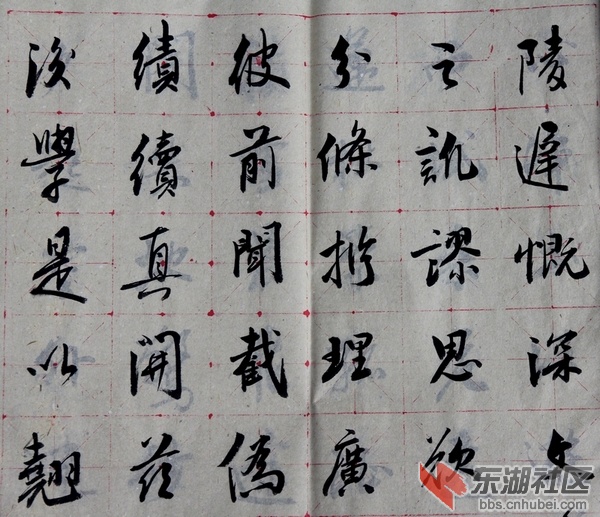 陵遲慨深文
之訛謬思欲
分條析理廣
彼前聞截偽
績續真開茲
後學是以翹
东湖社区
bbs.cnhubei.com